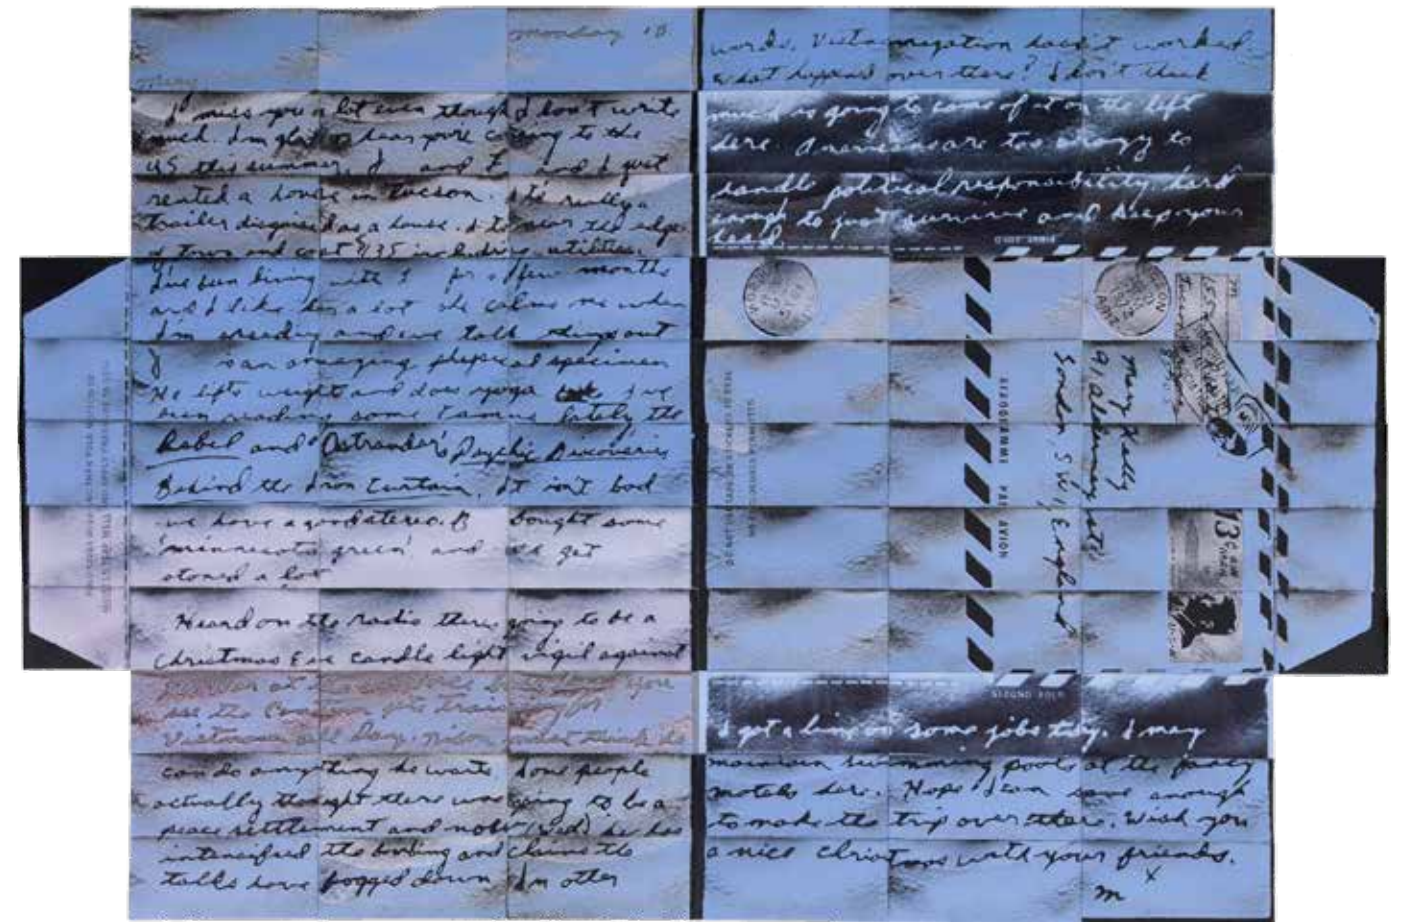 monday 18
Mary
I miss you a lot even though I don't write
much. I'm glad to hear you're coming to the
US this summer. J and F and I just
rented a house in Tucson. It's really a
trailer disguised as a house. It's near the edge
of town and cost $135 including utilities.
I've been living with J for a few months
and I like her a lot she calms me when
I'm and we talk things out
J is an amazing physical specimen
He lifts weight and does yoga I've
been reading some Camus lately the
Rebel and Ostrander's Psychic Discoveries
Behind the Iron Curtain. It isn't bad
we have a good stereo. B bought some
'minnesota green' and we get
stoned a lot
Heard on the radio there's going to be a
Christmas Eve candle light vigil against
the war at
see the
Vietnamese all Day. Nixon must think he
can do anything he wants Some people
actually thought there was going to be a
peace settlement and now he has
intensified the bombing and claims the
talks have bogged down In other
words, Vietnamization hasn't worked.
What happened over there? I don't think
much is going to come of it on the left
here. Americans are too crazy to
handle political responsibility. hard
enough to just survive and keep your
head.
Mary Kelly
91 Alderney St
London SW1, England
AEROGRAMME PAR AVION
13c
SECOND FOLD
I got a line on some jobs today. I may
maintain swimming pools at the fancy
motels here. Hope I can save enough
to make the trip over there. Wish you
a nice Christmas with your friends.
x
m